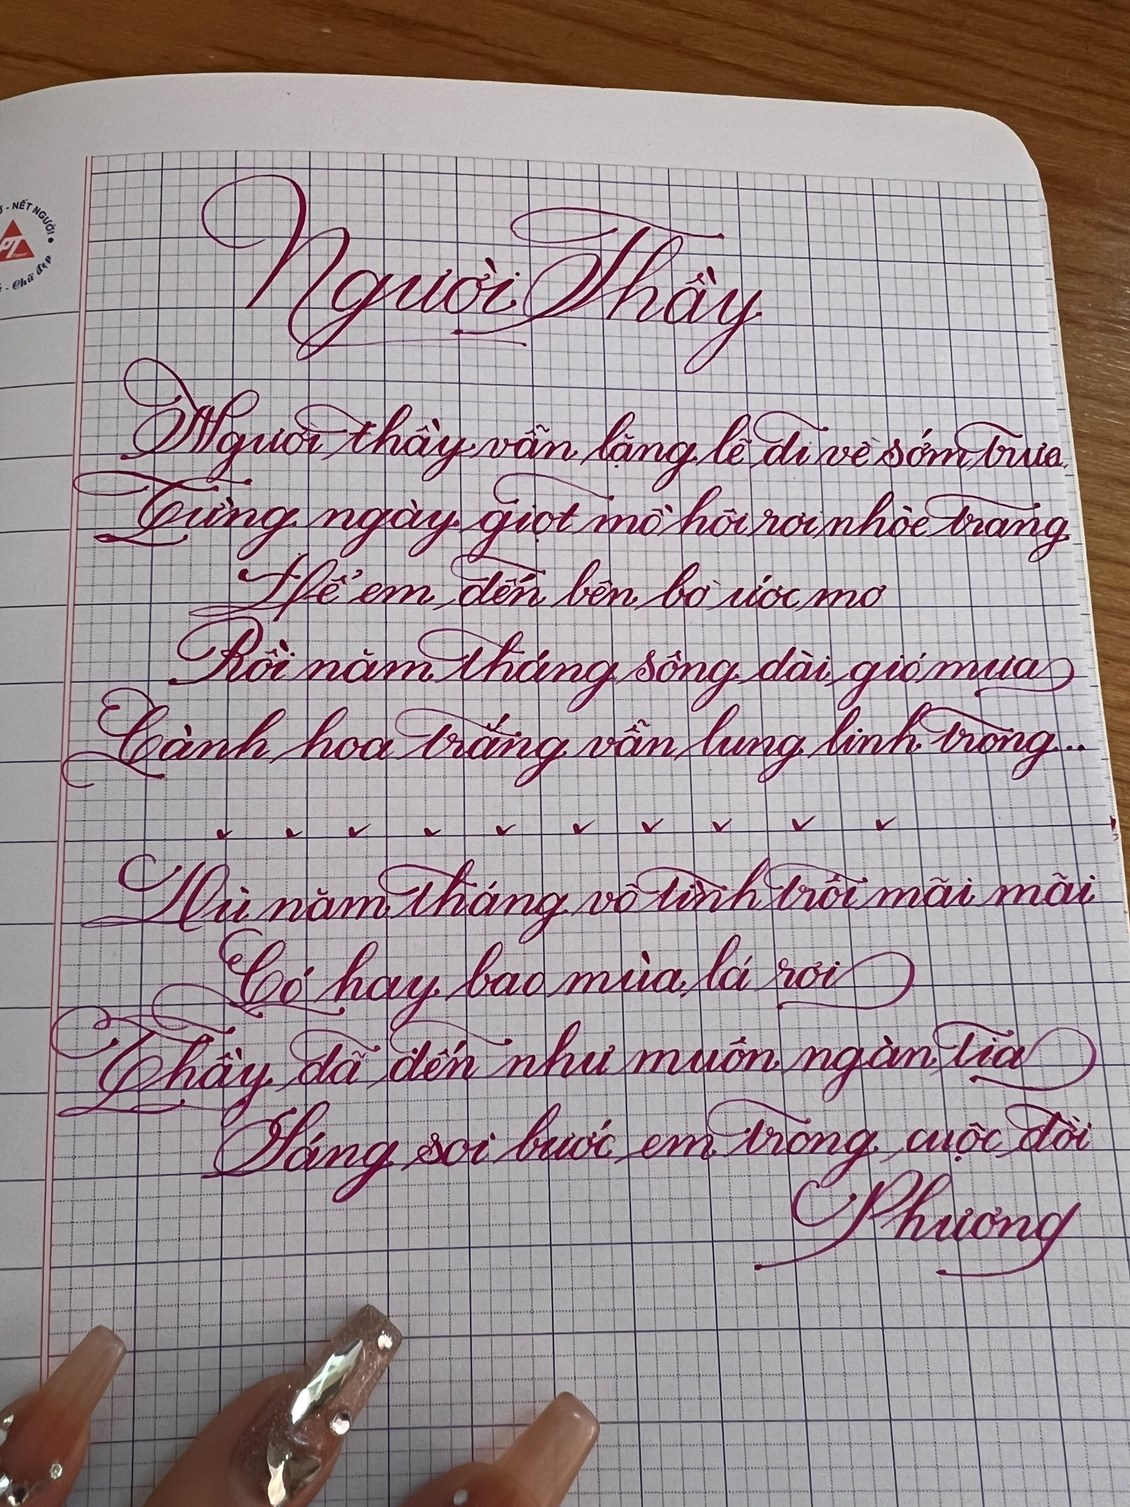 - NẾT NGƯỜI
PT
- Chữ đẹp
Người Thầy
Người thầy vẫn lặng lẽ đi về sớm trưa
Từng ngày giọt mồ hôi rơi nhòe trang
Để em đến bên bờ ước mơ
Rồi năm tháng sông dài gió mưa
Cành hoa trắng vẫn lung linh trong...
Dù năm tháng vô tình trôi mãi mãi
Có hay bao mùa lá rơi
Thầy đã đến như muôn ngàn tia
Sáng soi bước em trong cuộc đời
Phương